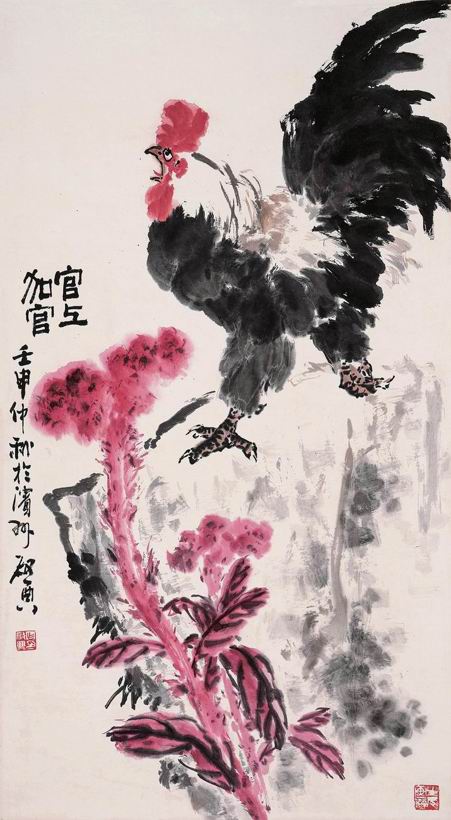 官上
加官
壬申仲秋於濱州啟典